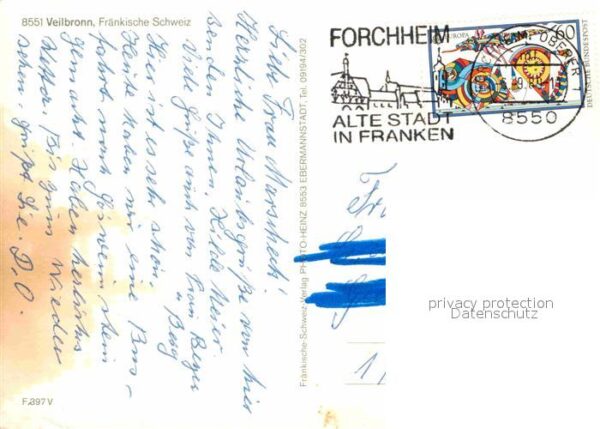 8551 Veilbronn, Fränkische Schweiz
Liebe Frau
Herzliche Urlaubsgrüße von hier
senden Ihnen Hilde Meier
Viele Grüße auch von Frau Beyer
u. Berg
Hier ist es sehr schön.
Heute haben wir eine Bus-
fahrt nach Gössweinstein
gemacht. Haben herrliches
Wetter. Bis zum Wieder
sehen, grüßt Sie D. O.
F.897V
Fränkische-Schweiz-Verlag PHOTO-HEINZ 8553 EBERMANNSTADT, Tel. 09194/302
FORCHHEIM
ALTE STADT
IN FRANKEN
EUROPA
60
DEUTSCHE BUNDESPOST
8550
privacy protection
Datenschutz